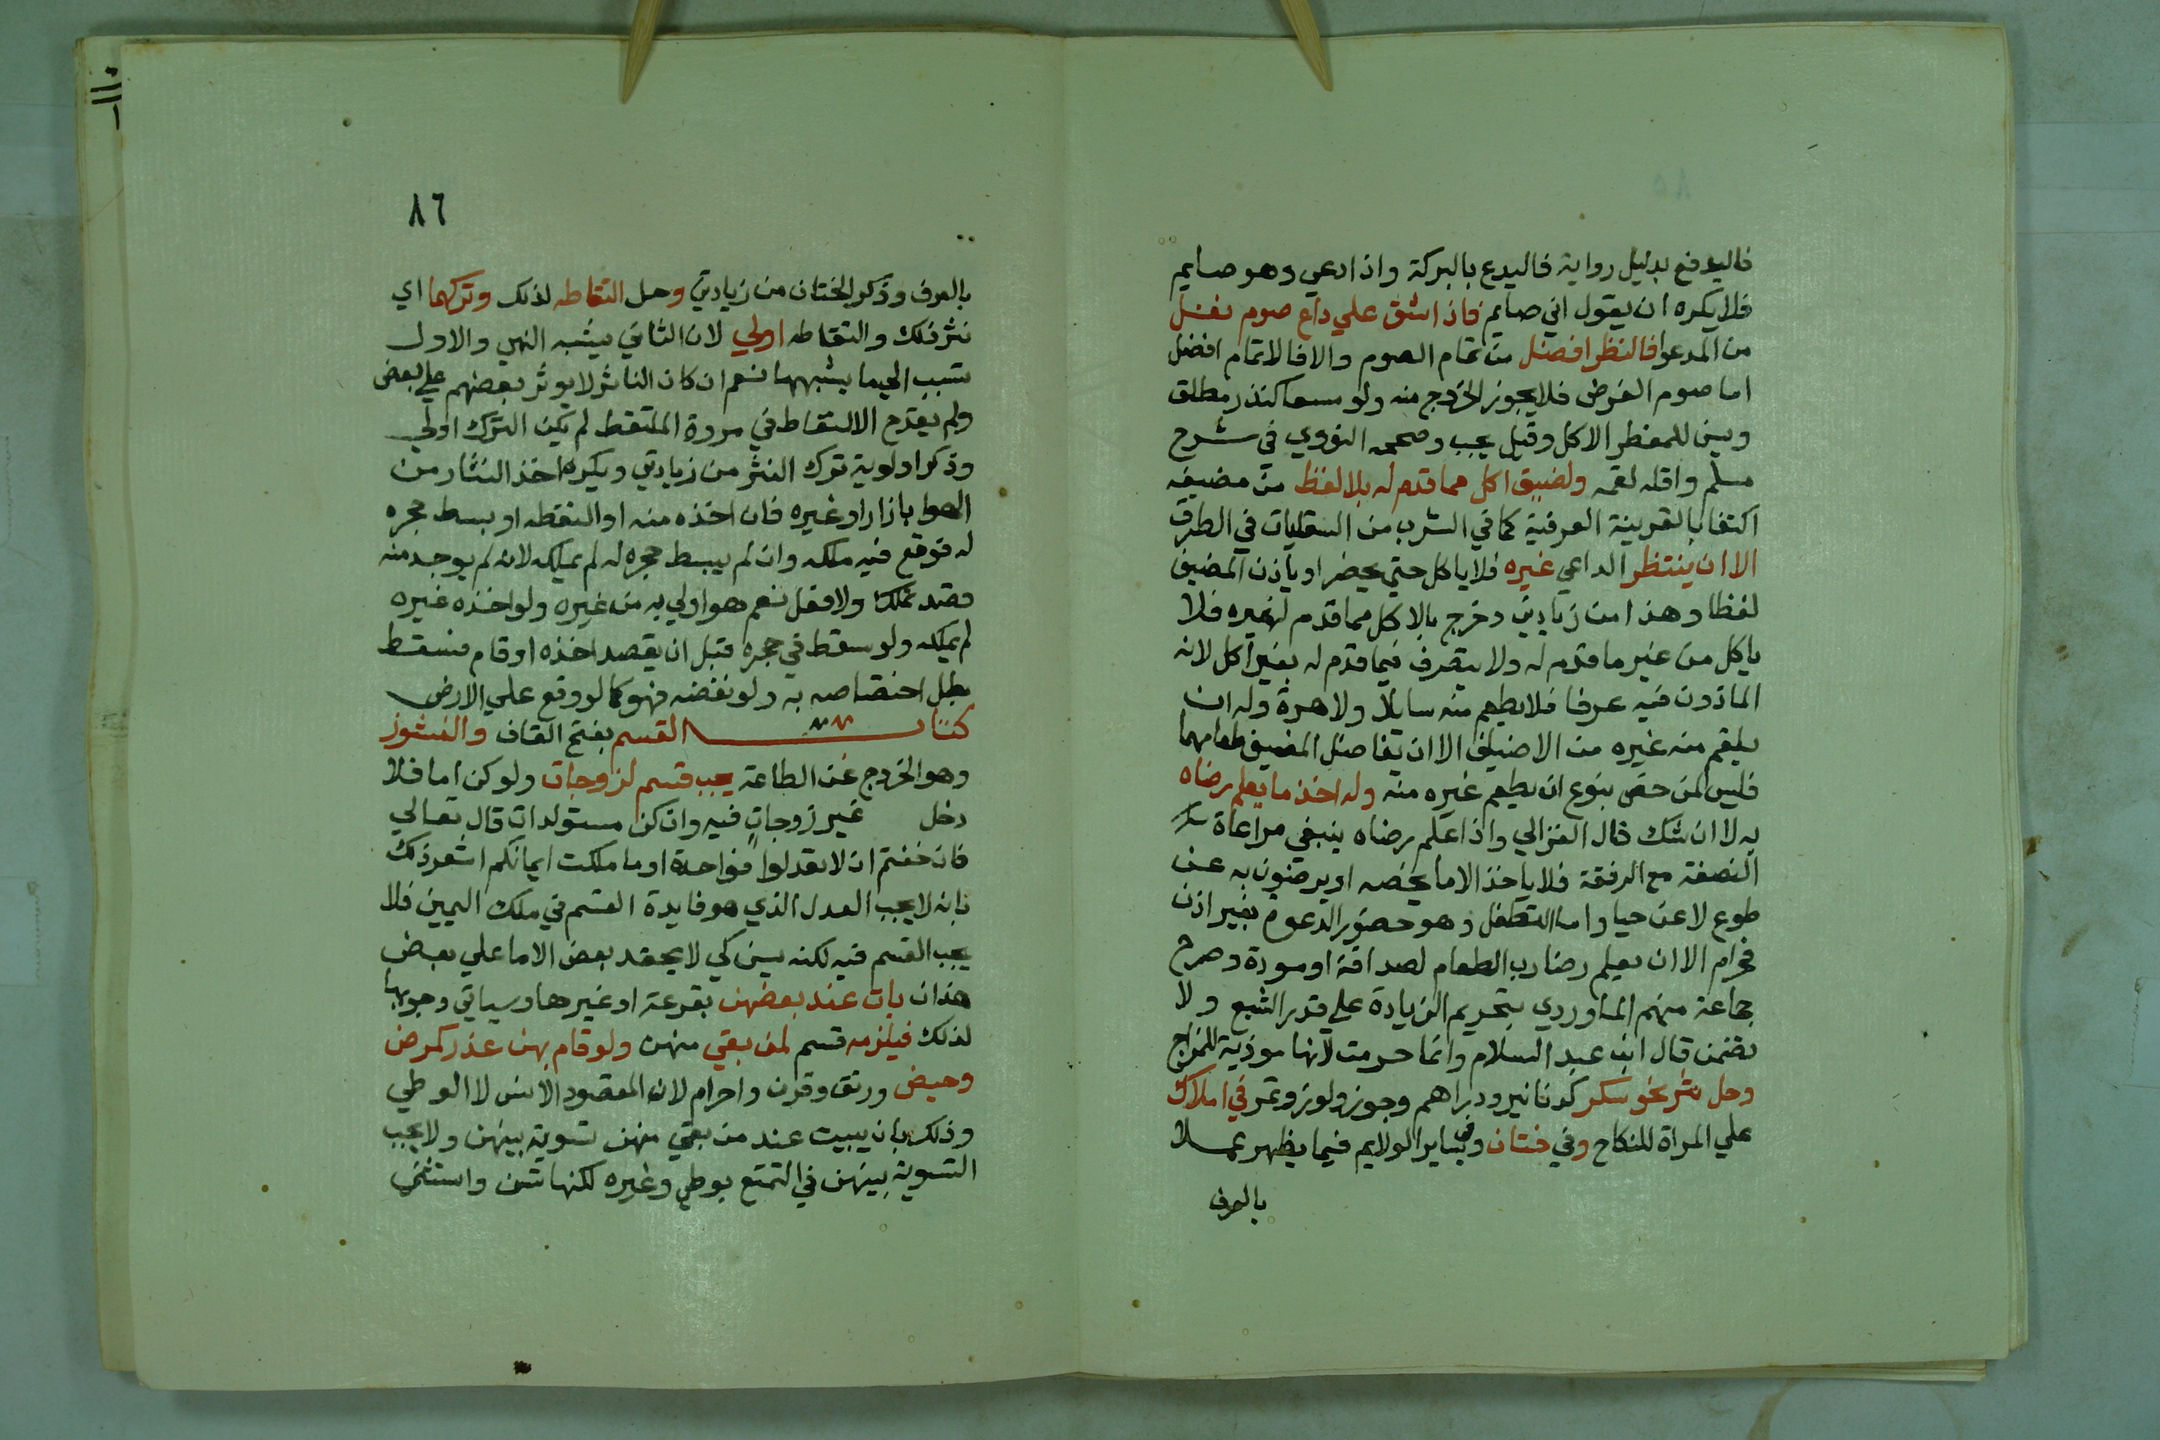 فاليدفع بدليل رواية فاليدع بالبركة واذا دعي وهو صايم
فلا يكره ان يقول اني صايم فاذا شق علي داع صوم نفل
من المدعوا فالفطر افضل من تمام الصوم والا فالاتمام افضل
اما صوم الفرض فلا يجوز الخروج منه ولو موسعا كنذر مطلق
ويسن للمفطر الاكل وقيل يجب وصححه النووي في شرح
مسلم واقله لقمه ولضيف اكل مما قدم له بلا لفظ من مضيفه
اكتفا بالقرينة العرفية كما في الشرب من السقايات في الطرق
الا ان ينتظر الداعي غيره فلا ياكل حتي يحضر او ياذن المضيف
لفظا وهذا من زيادتي وخرج بالاكل مما قدم له غيره فلا
ياكل من غير ما قدم له ولا يتصرف فيما قدم له بغير اكل لانه
الماذون فيه عرفا فلا يطعم منه سايلا ولا هرة وله ان
يلقم منه غيره من الاضياف الا ان يفاضل المضيف طعامهما
فليس لمن خص بنوع ان يطعم غيره منه وله اخذ ما يعلم رضاه
به لا ان شك قال الغزالي واذا علم رضاه ينبغي مراعاة
النصفة مع الرفقة فلا ياخذ الا ما يخصه او يرضون به عن
طوع لا عن حيا واما التطفل وهو حضور الدعوة بغير اذن
فحرام الا ان يعلم رضا رب الطعام لصداقة او مودة وصرح
جماعة منهم الماوردي بتحريم الزيادة علي قدر الشبع ولا
تضمن قال ابن عبد السلام وانما حرمت لانها موذية للمزاج
وحل نثر نحو سكر كدنانير ودراهم وجوز ولوز وتمر في املاك
علي المراة للنكاح وفي ختان وفي ساير الولايم فيما يظهر عملا
بالعرف
٨٦
بالعرف وذكر الختان من زيادتي وحل التقاطه لذلك وتركهما اي
نثر ذلك والتقاطه اولي لان الثاني يشبه النهي والاول
تسبب الي ما يشبهها نعم ان كان الناثر لا يوثر بعضهم علي بعض
ولم يقدح الالتقاط في مروة الملتقط لم يكن الترك اولي
وذكر اولوية ترك النثر من زيادتي ويكره اخذ النثار من
الهوا بازار او غيره فان اخذه منه او التقطه او بسط حجره
له فوقع فيه ملكه وان لم يبسط حجره له لم يملكه لانه لم يوجد منه
قصد تملك ولا فعل نعم هو اولي به من غيره ولو اخذه غيره
لم يملكه ولو سقط في حجره قبل ان يقصد اخذه او قام فسقط
بطل اختصاصه به ولو نفضه فهو كما لو وقع علي الارض
كتاب القسم بفتح القاف والنشوز
وهو الخروج عن الطاعة يجب قسم لزوجات ولو كن اما فلا
دخل غير زوجات فيه وان كن مستولدات قال تعالي
فان خفتم ان لا تعدلوا فواحدة او ما ملكت ايمانكم اشعر ذلك
بانه لا يجب العدل الذي هو فايدة القسم في ملك اليمين فلا
يجب القسم فيه لكنه يسن كي لا يحقد بعض الاما علي بعض
هذا ان بات عند بعضهن بقرعة او غيرها وسياتي وجوبها
لذلك فيلزمه قسم لمن بقي منهن ولو قام بهن عذر كمرض
وحيض ورتق وقرن واحرام لان المقصود الانس لا الوطي
وذلك بان يبيت عند من بقي منهن تسوية بينهن ولا يجب
التسوية بينهن في التمتع بوطي وغيره لكنها تسن واستثني